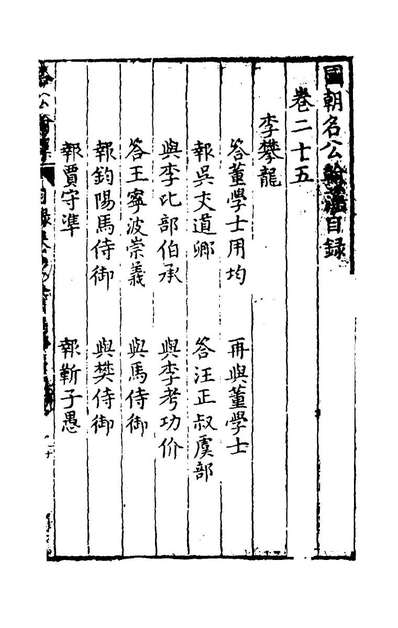 國朝名公翰藻目錄
卷二十五
李攀龍
答董學士用均　再與董學士
報吳夫道卿　答汪正叔虞部
與李比部伯承　與李考功价
答王寧波崇義　與馬侍御
報鈞陽馬侍御　與樊侍御
報賈守凖　報靳子愚